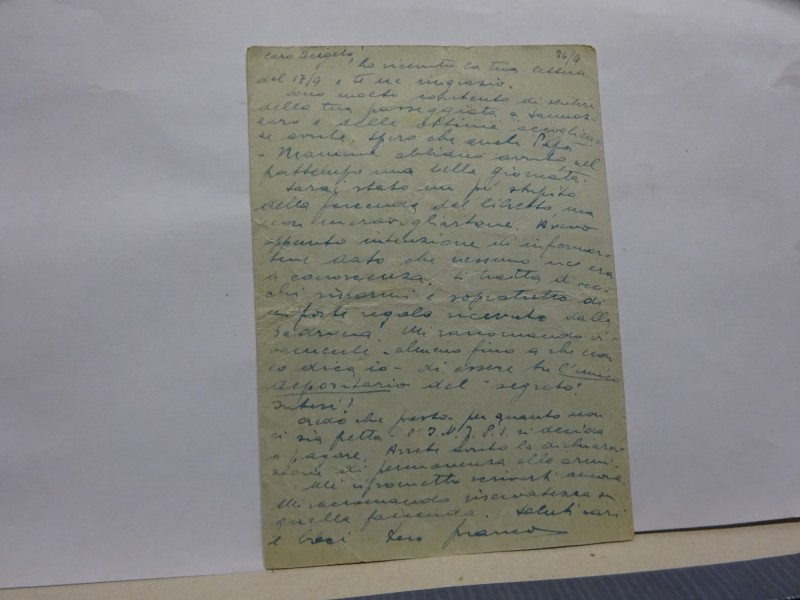 Caro Angelo, 26/9
ho ricevuto la tua lettera
del 17/9 e te ne ringrazio.
Sono molto contento di sentire
della tua passeggiata a
e delle ottime accoglienze
se avute. Spero che anche Papà
e Mamma abbiano avuto nel
frattempo una bella giornata.
Sarai stato un pò stupito
della faccenda del libretto, ma
non meravigliartene. Avevo
appunto intenzione di informar-
tene dato che nessuno ne era
a conoscenza. Si tratta di vec-
chi risparmi e sopratutto di
un forte regalo ricevuto dalla
padrona. Mi raccomando vi-
vamente - almeno fino a che non
lo dica io - di essere tu l'unico
depositario del "segreto".
Intesi!
Credo che presto - per quanto non
ci sia fretta - l'I.N.F.P.S. si decida
a pagare. Avrete avuto la dichiara-
zione di permanenza alle armi.
Mi riprometto scriverti ancora.
Mi raccomando riservatezza su
quella faccenda. Saluti cari
e baci tuo Franco